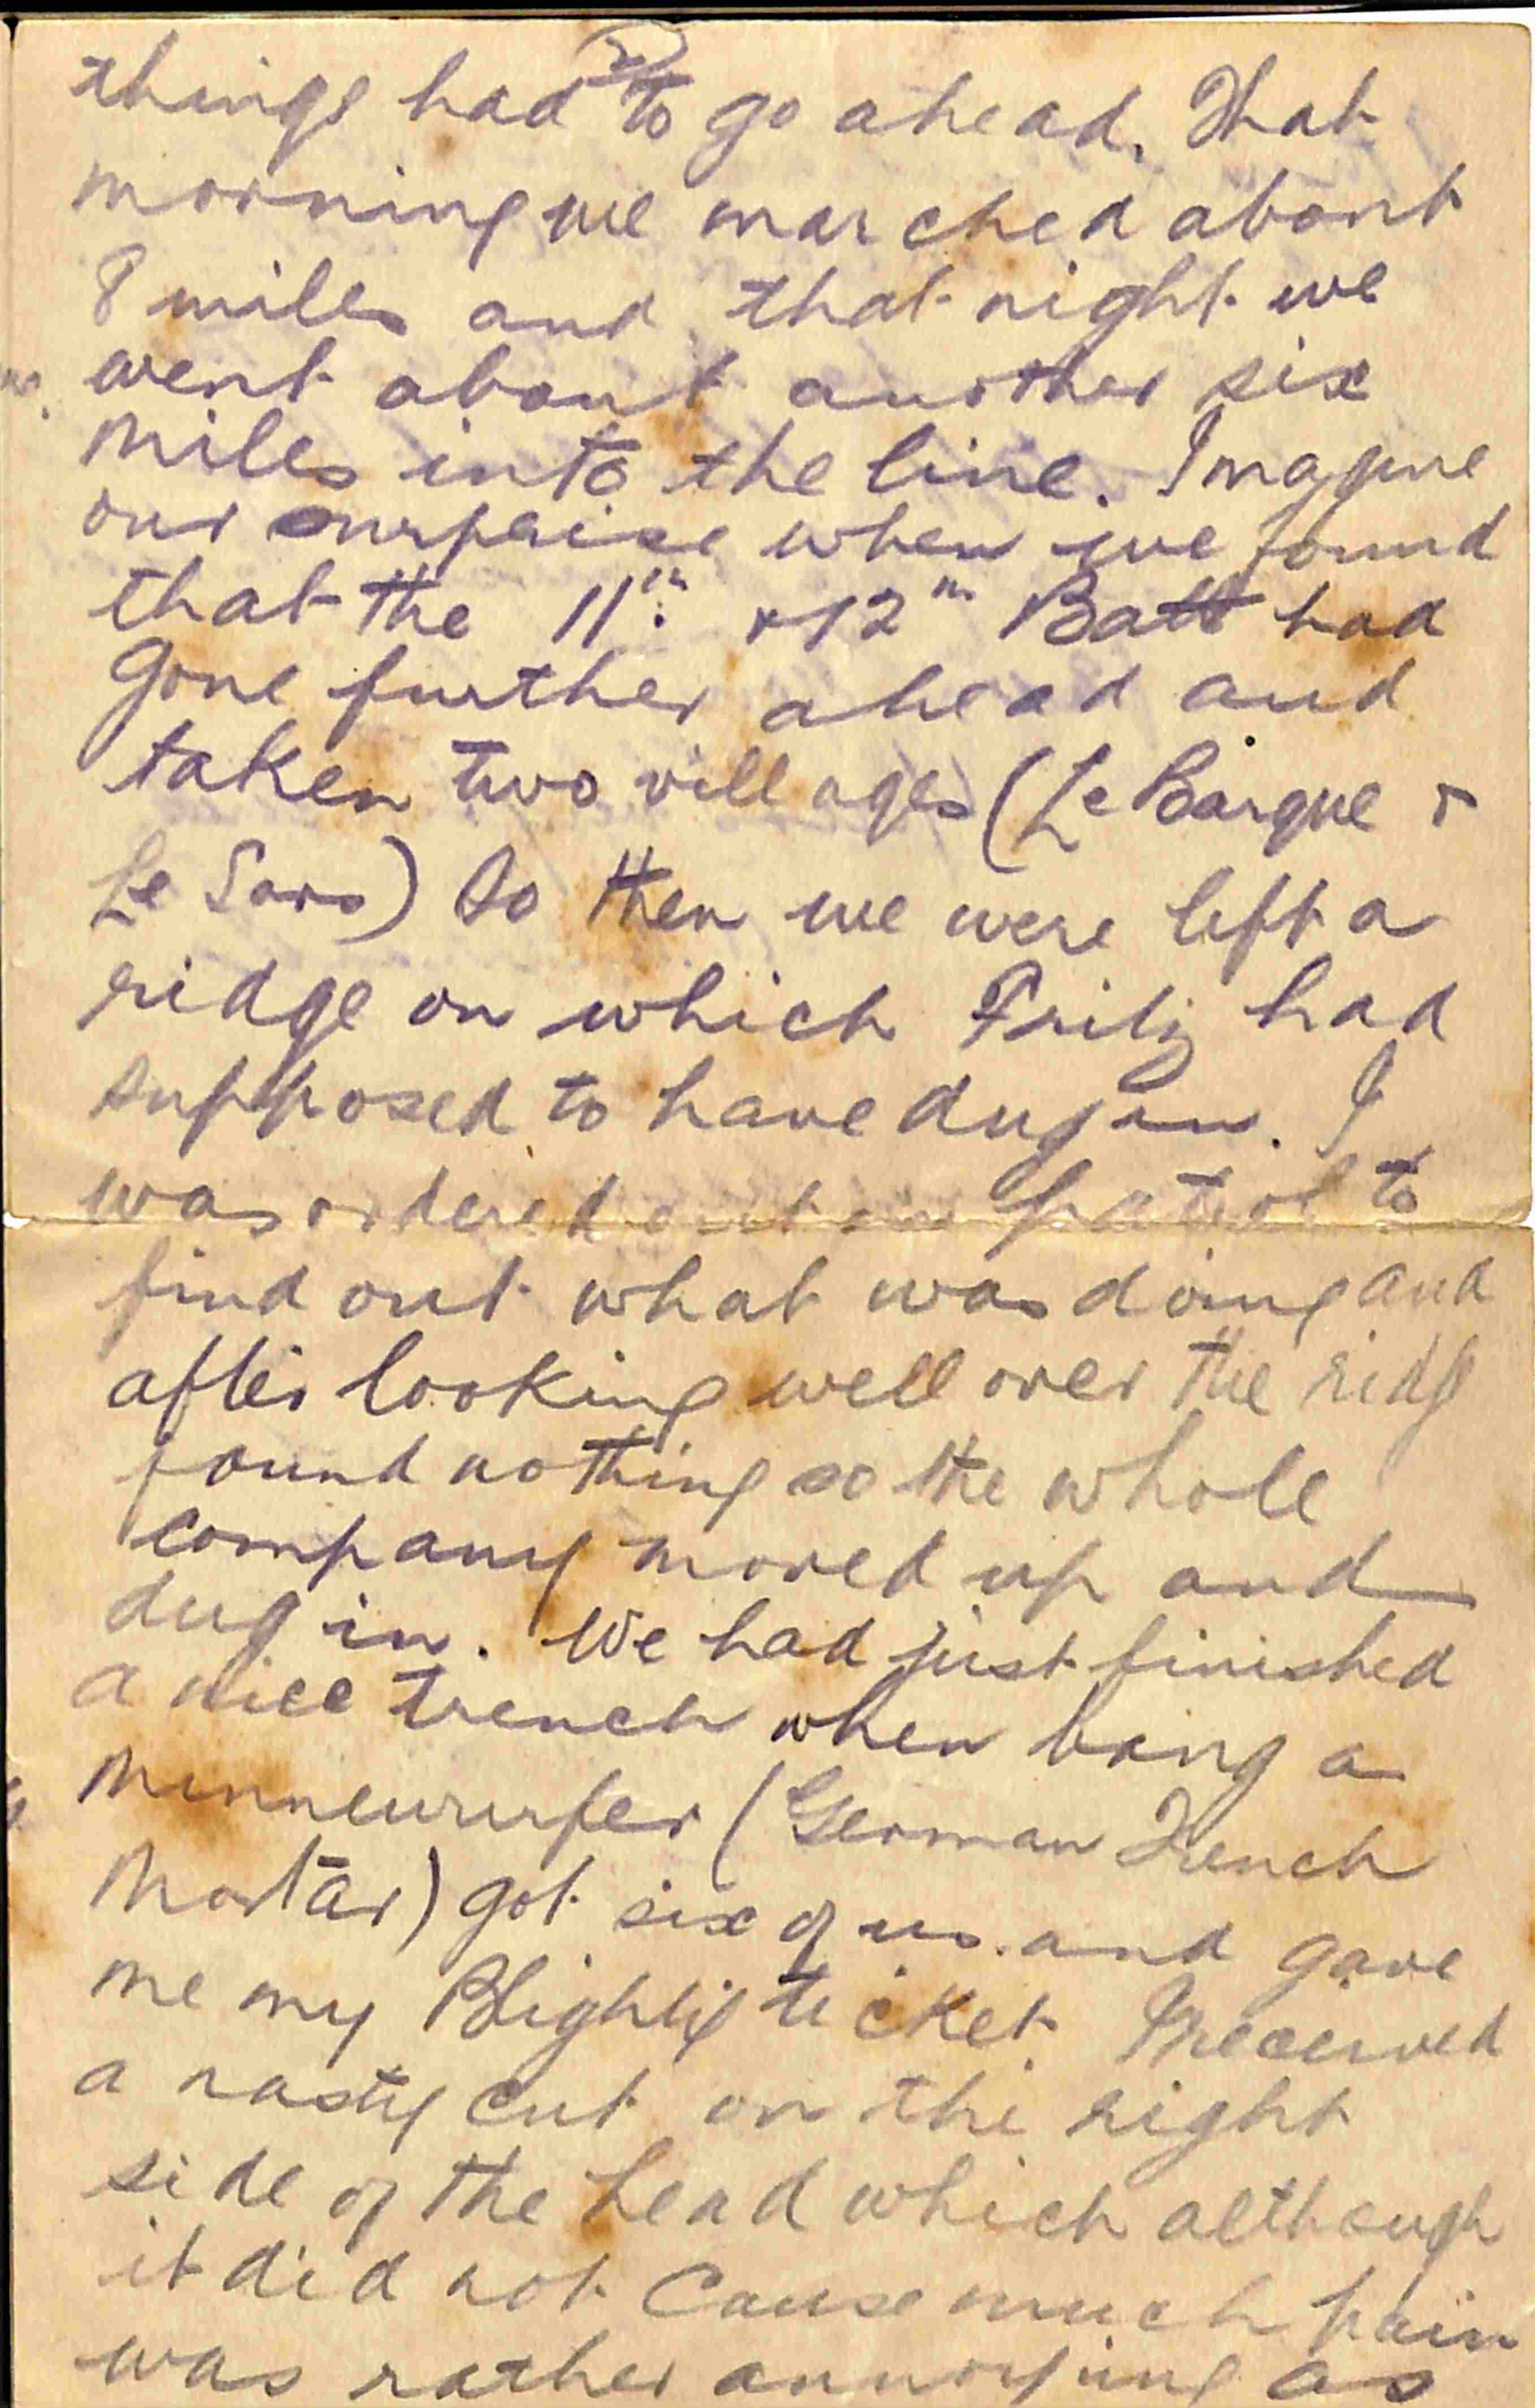 2)
things had to go ahead. That
morning we marched about
8 miles and that night we
went about another six
miles into the line. Imagine
our surprise when we found
that the 11th & 12th Batt had
gone further ahead and
taken two villages (Le Barque &
Le Sars) So then we were left a
ridge on which Fritz had
supposed to have dug in. I
was ordered out on patrol to
find out what was doing and
after looking well over the ridge
found nothing so the whole
company moved up and
dug in. We had just finished
a nice trench when bang a
Minnewurfer (German Trench
Mortar) got six of us and gave
me my Blighty ticket. I received
a nasty cut on the right
side of the head which although
it did not cause much pain
was rather annoying as